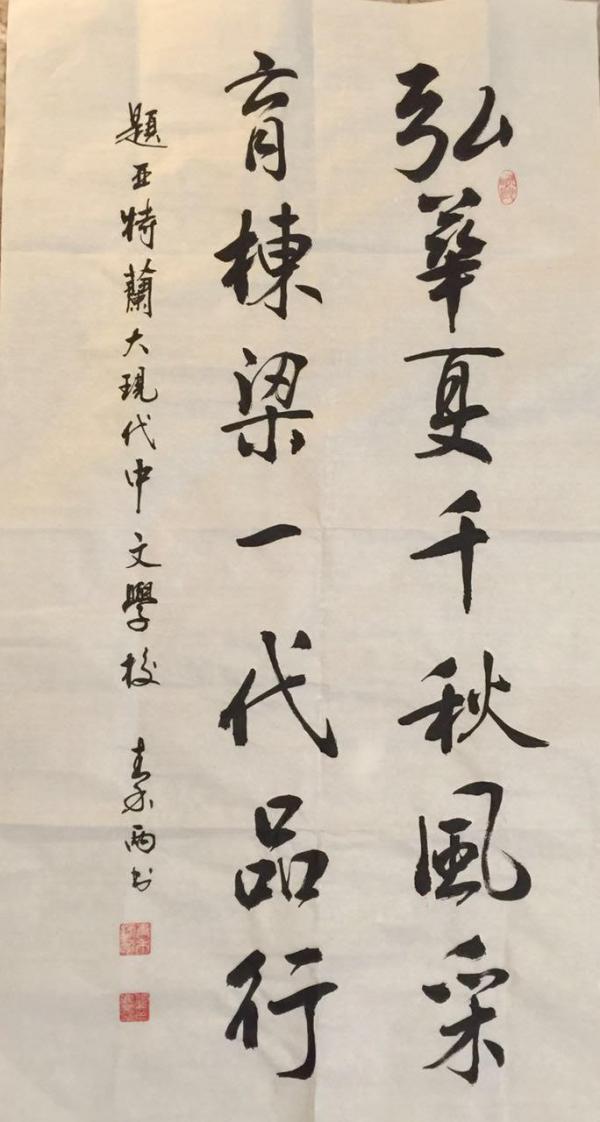 弘華夏千秋風采
育棟梁一代品行
題亞特蘭大現代中文學校
雨书